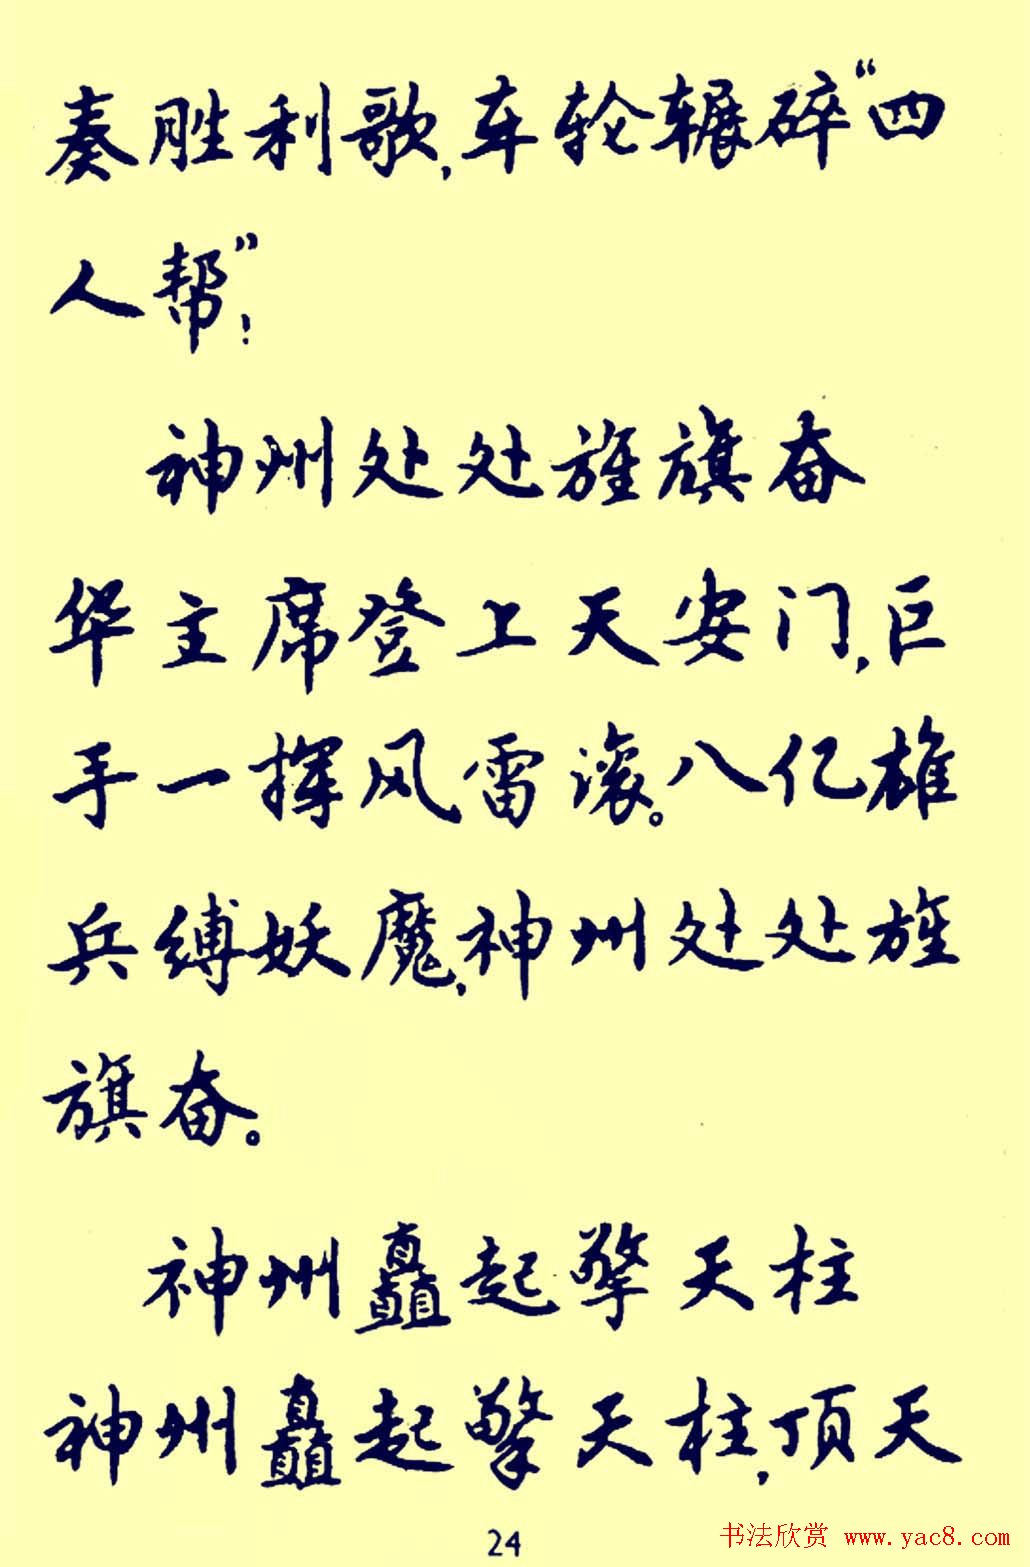 奏胜利歌，车轮辗碎“四
人帮”！
神州处处旌旗奋
华主席登上天安门，巨
手一挥风雷滚。八亿雄
兵缚妖魔，神州处处旌
旗奋。
神州矗起擎天柱
神州矗起擎天柱，顶天
24
书法欣赏 www.yac8.com